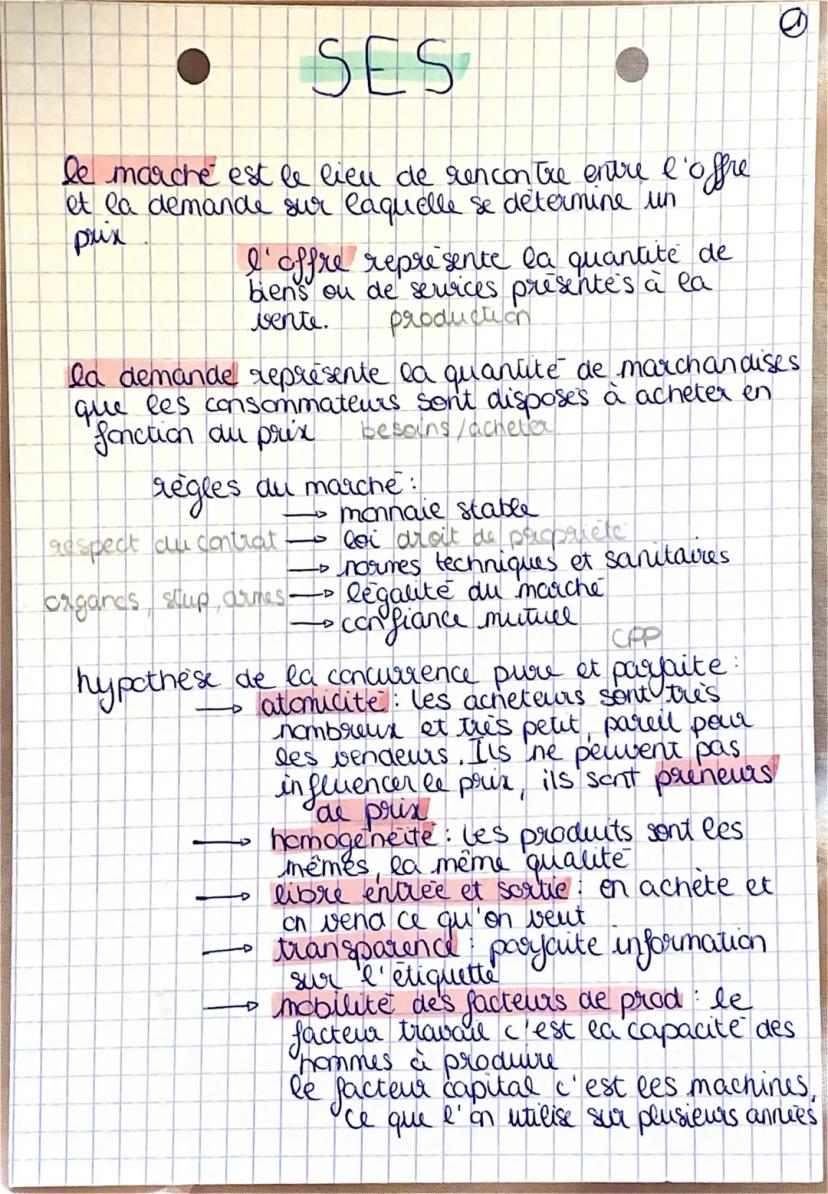 ①
SES
le marché est le lieu de rencontre entre l'offre
et la demande sur laquelle se détermine un
prix.
l'offre représente la quantité de
biens ou de services présentés à la
vente. production
la demande représente la quantité de marchandises
que les consommateurs sont disposés à acheter en
fonction du prix besoins/acheter
règles du marché :
→ monnaie stable
respect du contrat → loi droit de propriété
→ normes techniques et sanitaires
organes, stup, armes → légalité du marché
→ confiance mutuel
CPP
hypothèse de la concurrence pure et parfaite :
→ atomicité : les acheteurs sont très
nombreux et très petit, pareil pour
les vendeurs. Ils ne peuvent pas
influencer le prix, ils sont preneurs
de prix
→ homogénéité : les produits sont les
mêmes, la même qualité
→ libre entrée et sortie : on achète et
on vend ce qu'on veut
→ transparence : parfaite information
sur l'étiquette
→ mobilité des facteurs de prod : le
facteur travail c'est la capacité des
hommes à produire
le facteur capital c'est les machines,
ce que l'on utilise sur plusieurs années